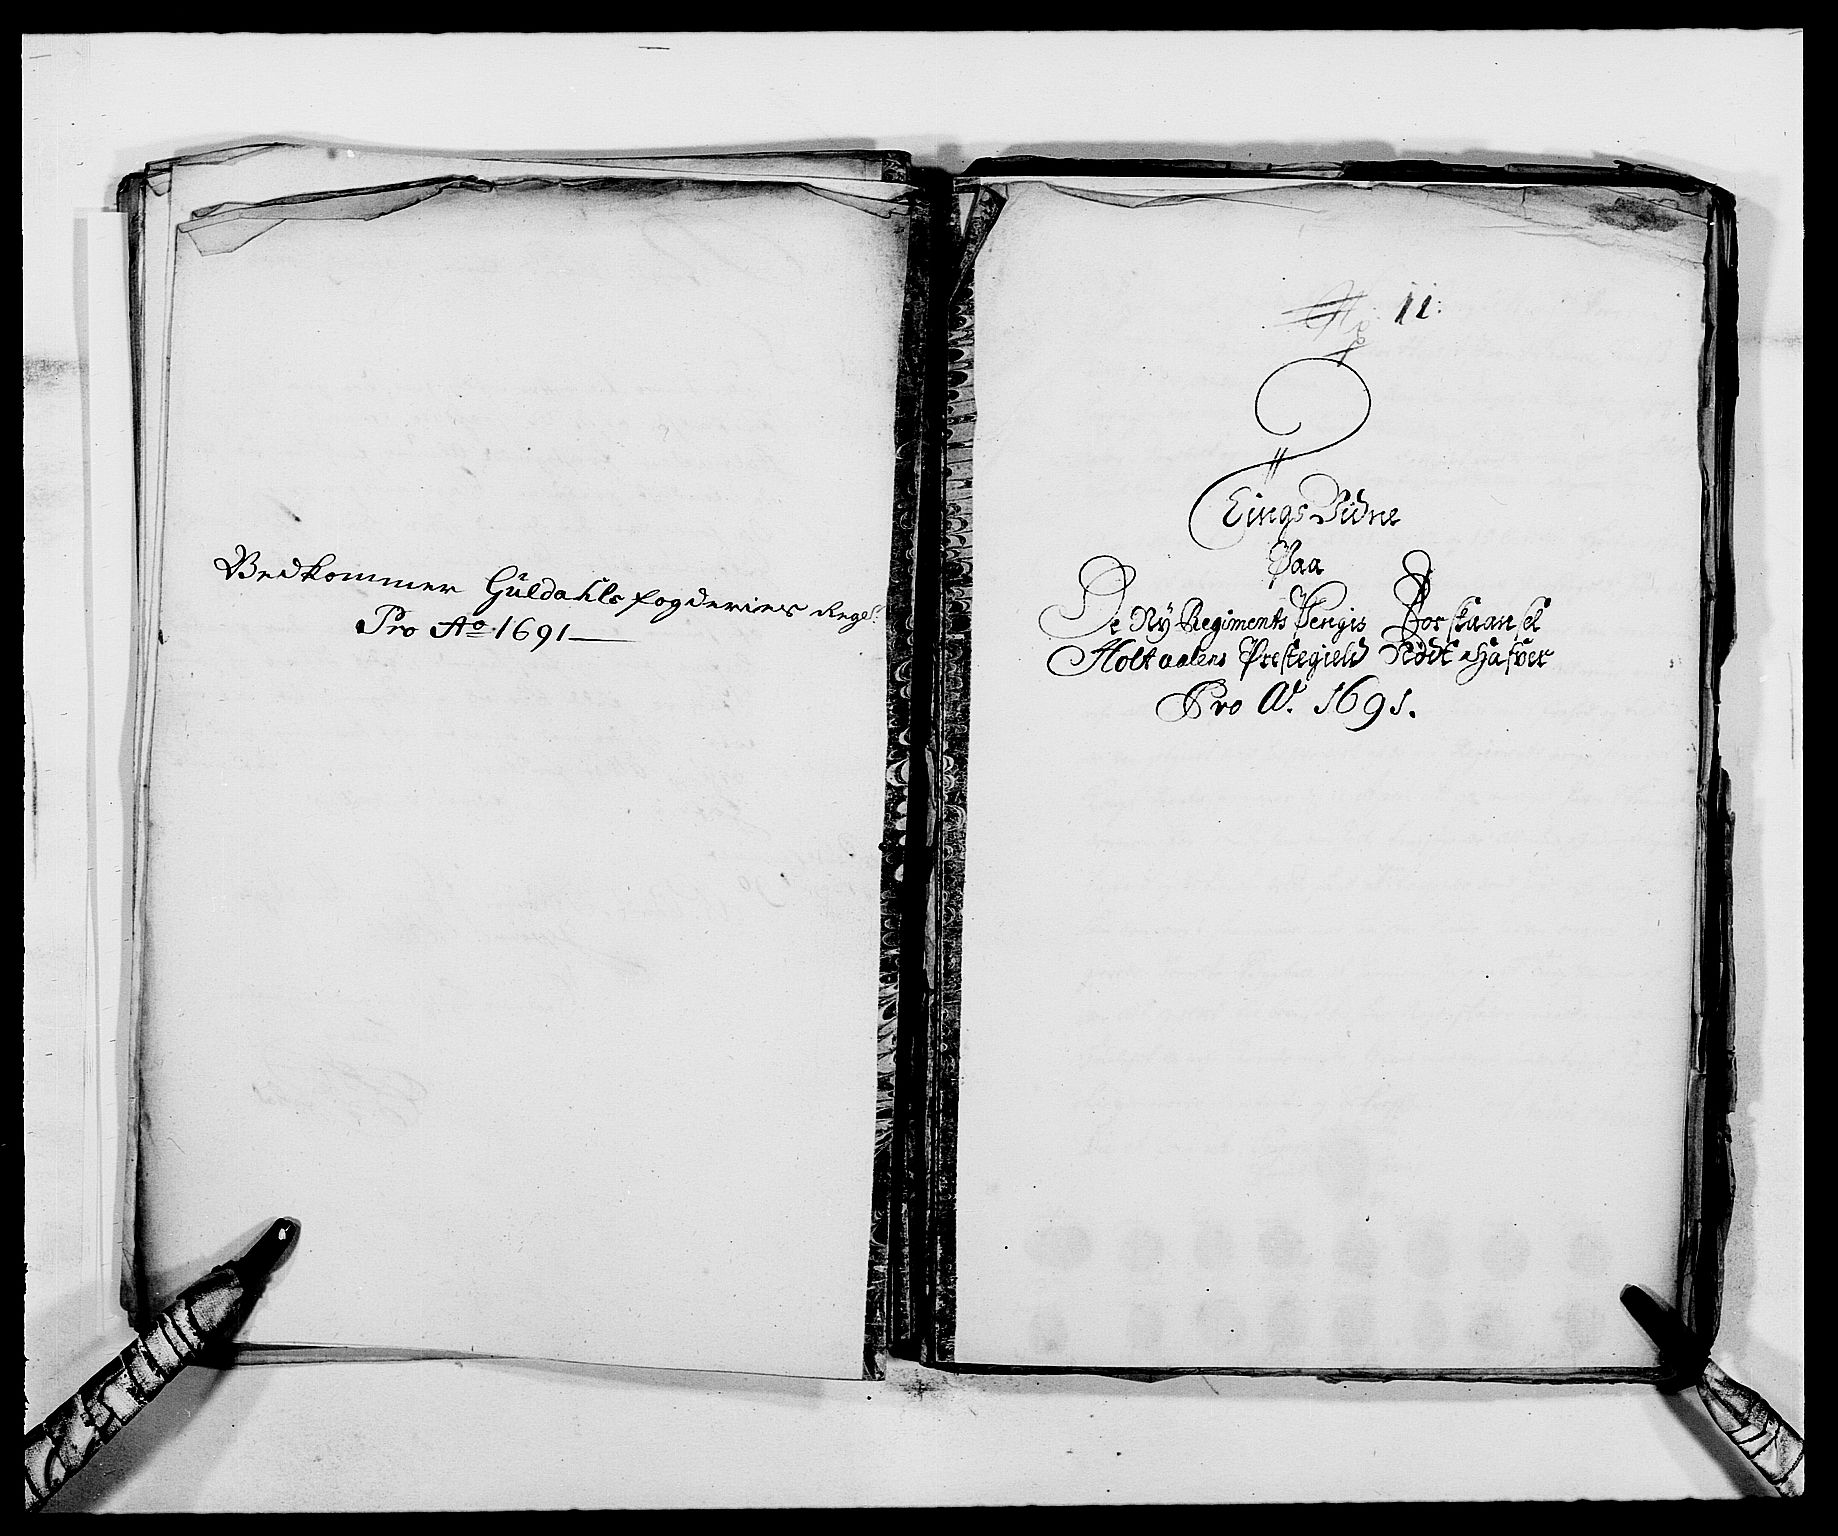 Vedkommer Guldahls fogderies Regsk:
Pro Ao 1691
No: 11:
Tings Vidne
Paa
De Ny Regiments Pengis Forskaansel
Holtaalens Prestegield Nödt hafver
Pro A: 1691.